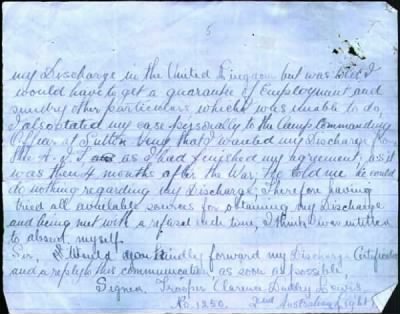 5
my Discharge in the United Kingdom but was told I
would have to get a guarantee of Employment and
sundry other particulars which I was unable to do,
I also stated my case personally to the Camp Commanding
Officer at Sutton Veny that I wanted my Discharge from
the A.I.F. as I had finished my agreement, as it
was then 4 months after the War, he told me he could
do nothing regarding my Discharge, Therefore having
tried all available sources for obtaining my Discharge
and being met with a refusal each time, I think I was entitled
to absent myself.
Sir, Would you kindly forward my Discharge Certificate
and a reply to this communication as soon as possible,
Signed Trooper Clarence Dudley Lewis.
No. 1250. 2nd Australian Light